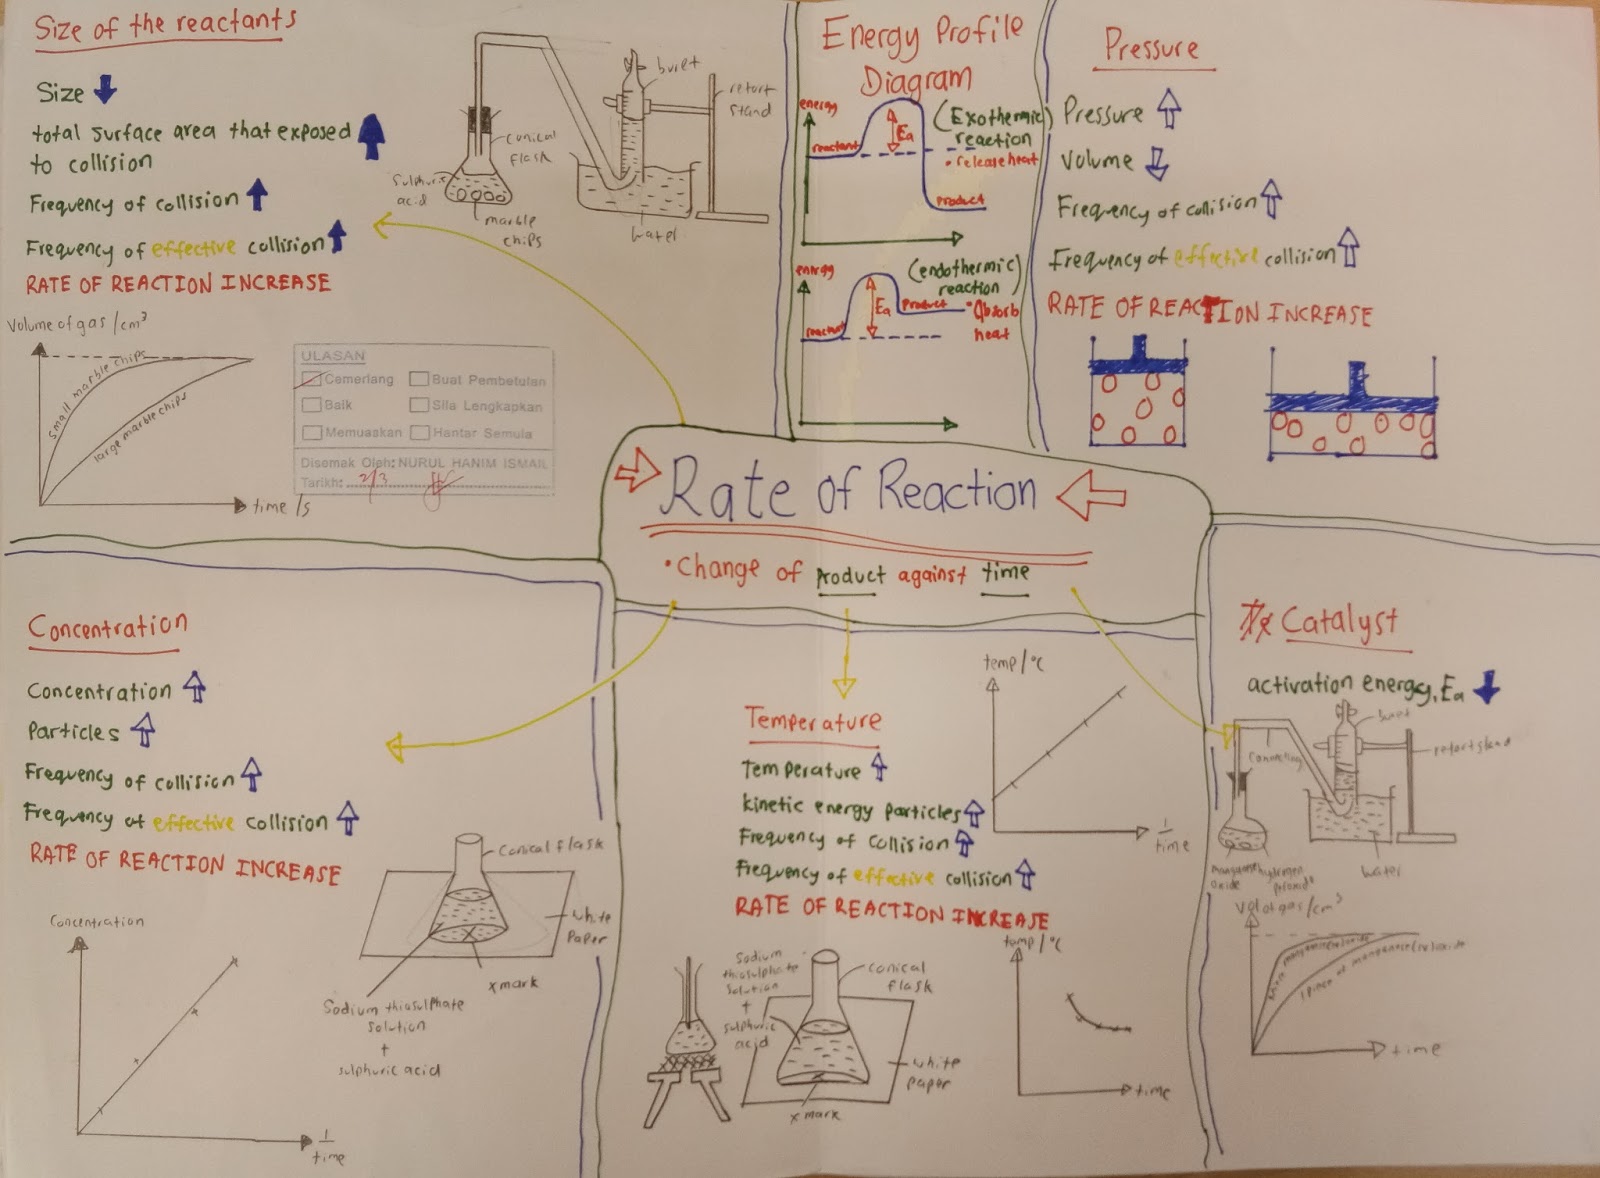 Size of the reactants
Size
total surface area that exposed
to collision
Frequency of collision
Frequency of effective collision
RATE OF REACTION INCREASE
buret
retort
stand
conical
flask
sulphuric
acid
marble
chips
water
Volume of gas /cm³
small marble chips
large marble chips
time /s
ULASAN
Cemerlang
Buat Pembetulan
Baik
Sila Lengkapkan
Memuaskan
Hantar Semula
Disemak Oleh: NURUL HANIM ISMAIL
Tarikh: 2/3
Energy Profile
Diagram
energy
reactant
Ea
(Exothermic)
reaction
• release heat
Product
energy
reactant
Ea
(endothermic)
reaction
Product
• Absorb
heat
Pressure
Pressure
Volume
Frequency of collision
Frequency of effective collision
RATE OF REACTION INCREASE
Rate of Reaction
• Change of product against time
Concentration
Concentration
Particles
Frequency of collision
Frequency of effective collision
RATE OF REACTION INCREASE
Concentration
1
time
conical flask
white
paper
x mark
Sodium thiosulphate
solution
+
sulphuric acid
Temperature
Temperature
kinetic energy particles
Frequency of collision
Frequency of effective collision
RATE OF REACTION INCREASE
temp/°C
1
time
Sodium
thiosulphate
solution
+
sulphuric
acid
conical
flask
white
paper
x mark
temp/°C
time
Catalyst
activation energy, Ea
buret
retort stand
connecting
water
Vol of gas/cm³
time